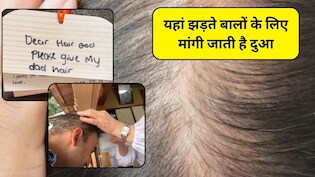 Dear Hair God
Please give My
dad hair
यहां झड़ते बालों के लिए
मांगी जाती है दुआ